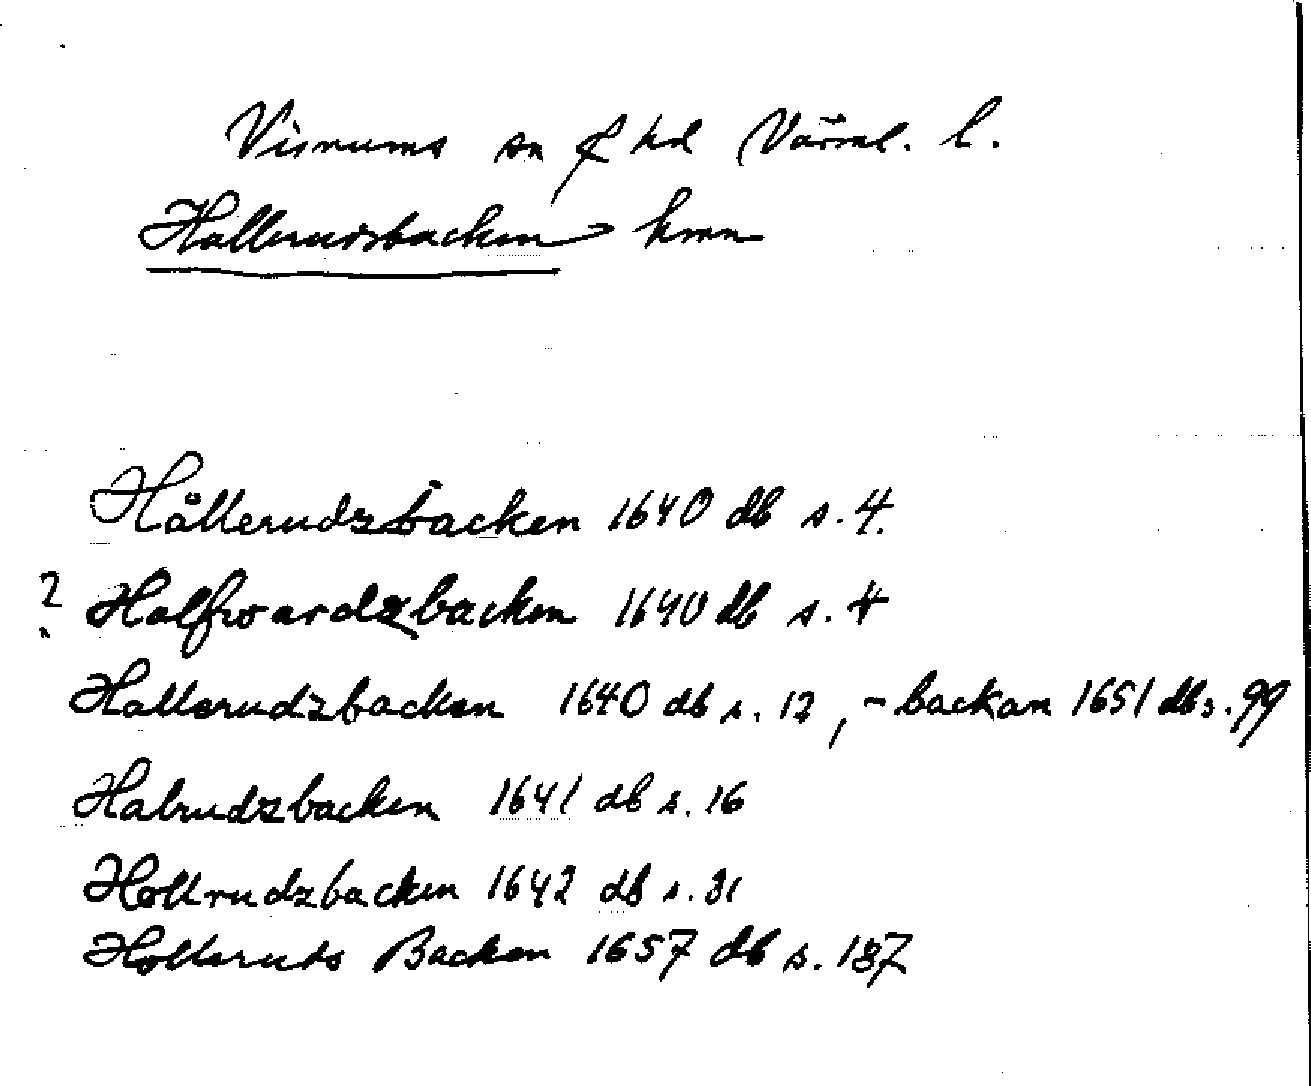 Visnums sn f hd Värml. l.
Hallerudsbacken hmn
Hållerudzbacken 1640 db s. 4
? Halfwardzbacken 1640 db s. 4
Hallerudzbacken 1640 db s. 12, -backan 1651 db s. 99
Halrudzbacken 1641 db s. 16
Hollrudzbacken 1642 db s. 31
Holleruds Backen 1657 db s. 187